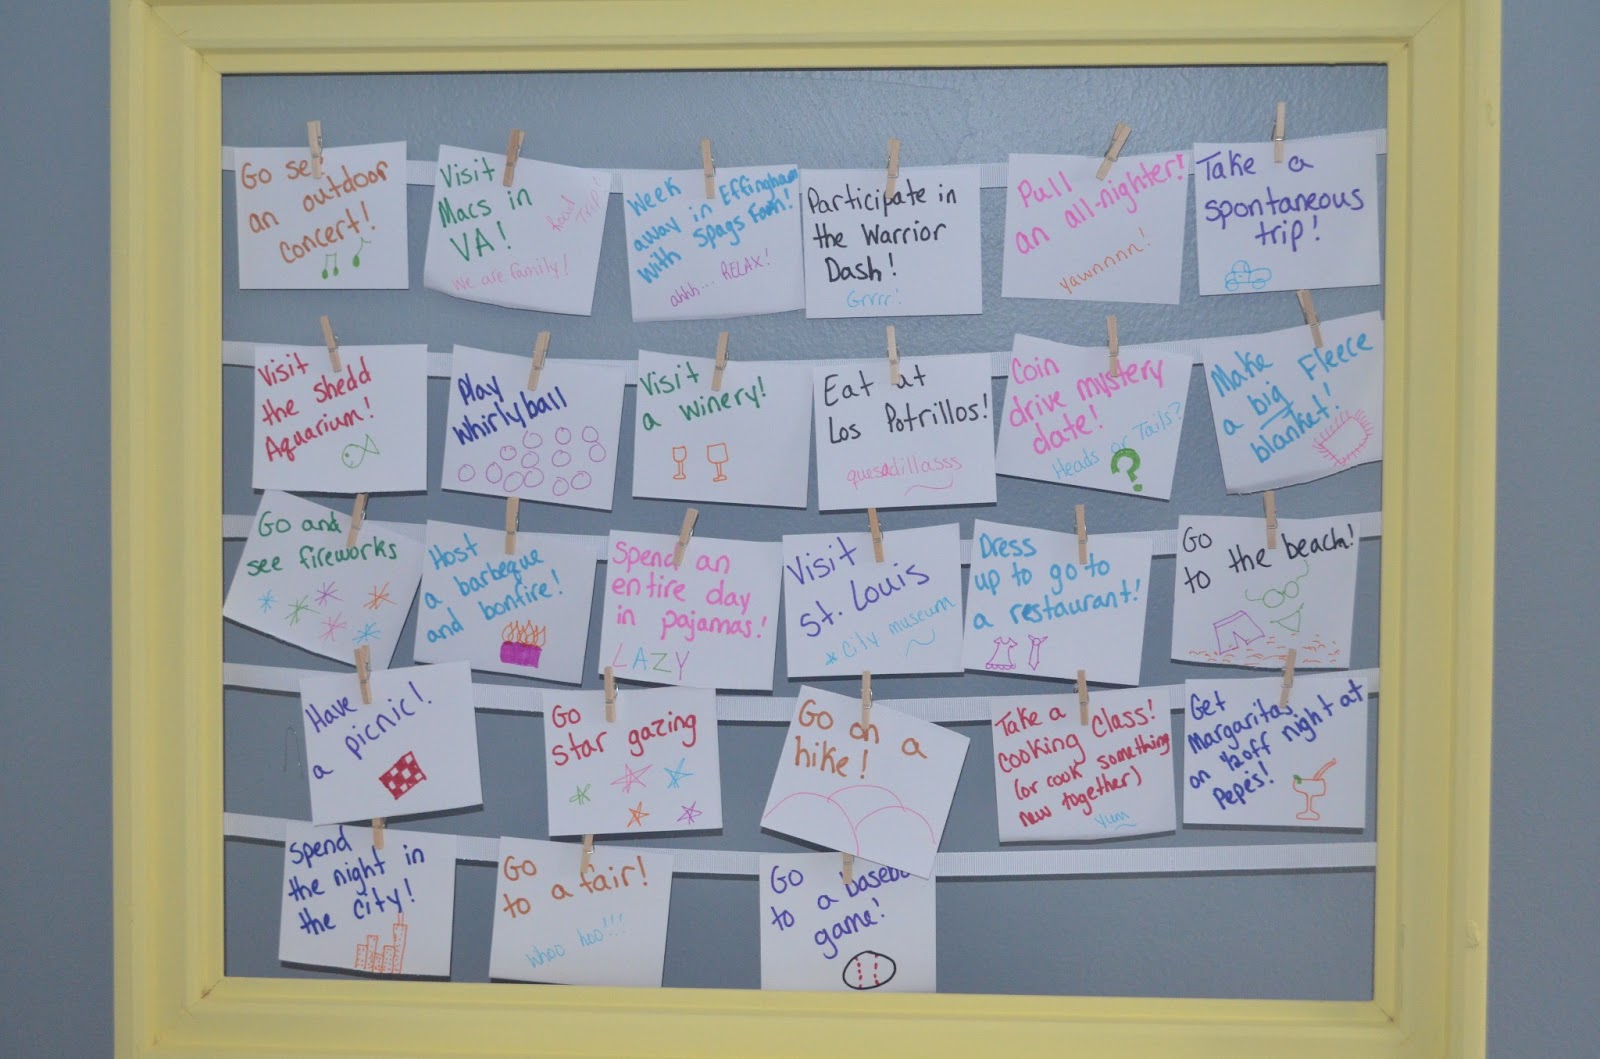 Go see
an outdoor
concert!
Visit
Macs in
VA!
Road
Trip!
We are family!
Week
away in Effingham
with Spags Fam!
ahhh... RELAX!
Participate in
the Warrior
Dash!
Grrrr!
Pull
an all-nighter!
yawnnnn!
Take a
spontaneous
trip!
Visit
the shedd
Aquarium!
Play
whirlyball
Visit
a winery!
Eat at
Los Potrillos!
quesadillasss
Coin
drive mystery
date!
Heads or Tails?
?
Make
a big Fleece
blanket!
Go and
see fireworks
Host
a barbeque
and bonfire!
Spend an
entire day
in pajamas!
LAZY
Visit
St. Louis
*City museum
Dress
up to go to
a restaurant!
Go
to the beach!
Have
a picnic!
Go
star gazing
Go on a
hike!
Take a
cooking Class!
(or cook something
new together)
Yum
Get
Margaritas
on 1/2 off night at
Pepe's!
Spend
the night in
the city!
Go
to a fair!
Whoo hoo!!!
Go
to a baseb
game!